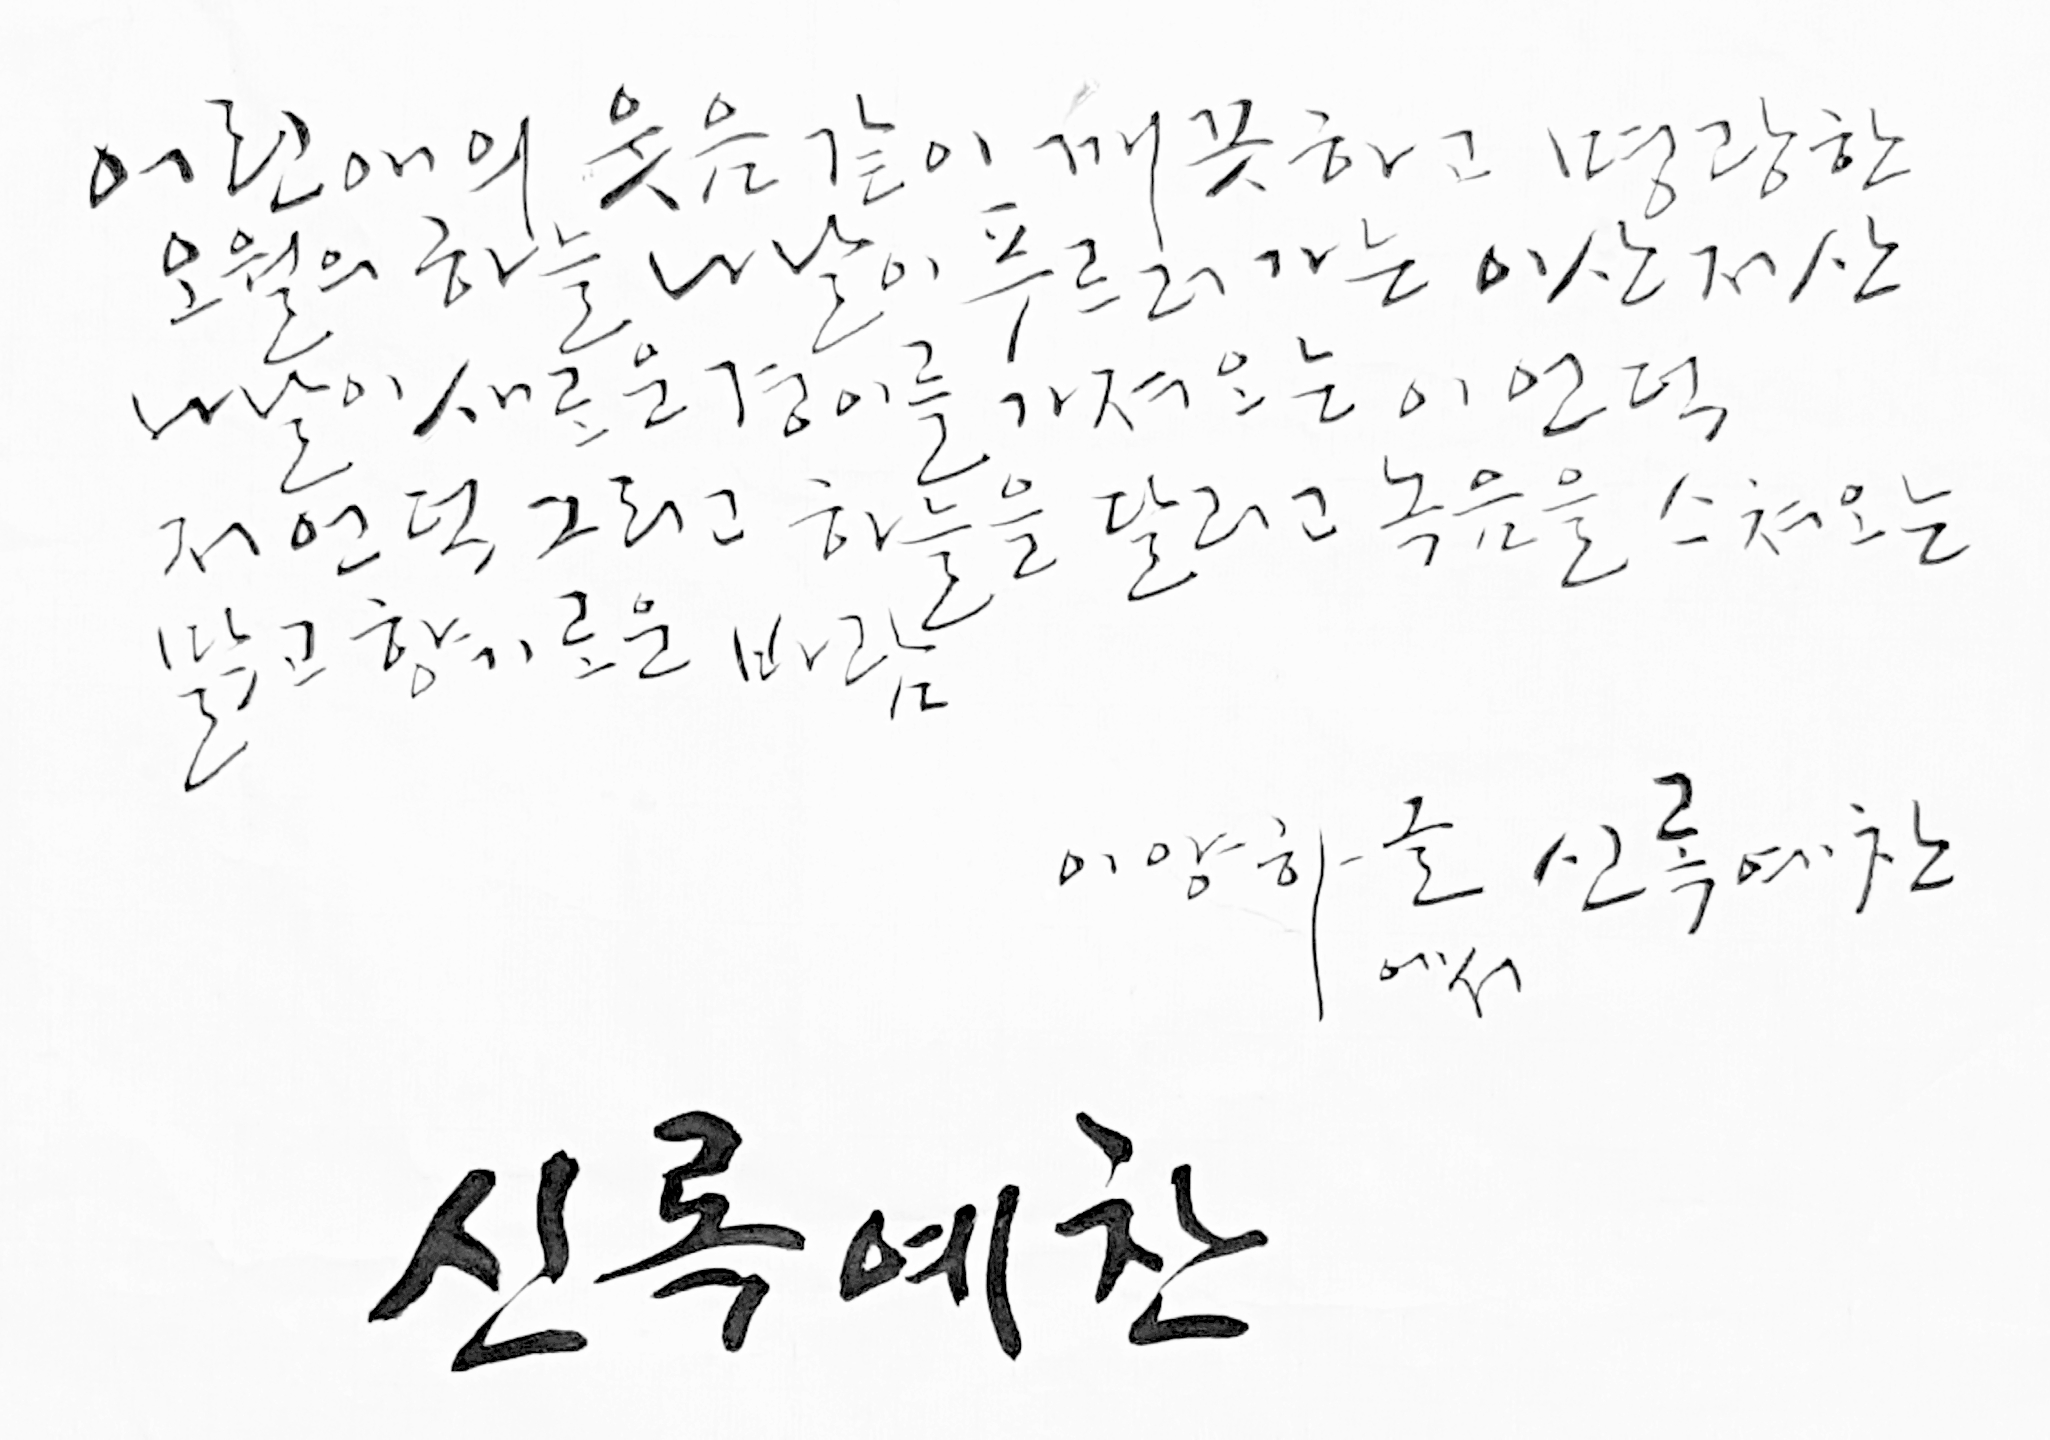 어린애의 웃음같이 깨끗하고 명랑한
오월의 하늘 나날이 푸르러가는 이산 저산
나날이 새로운 경이를 가져오는 이 언덕
저 언덕 그리고 하늘을 달리고 녹음을 스쳐오는
맑고 향기로운 바람
이양하 글 신록예찬
에서
신록예찬